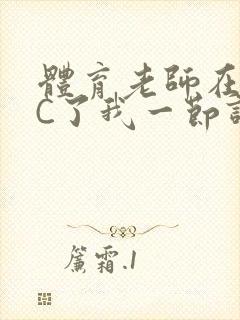 體育老師在
C了我一節
簾霜.1